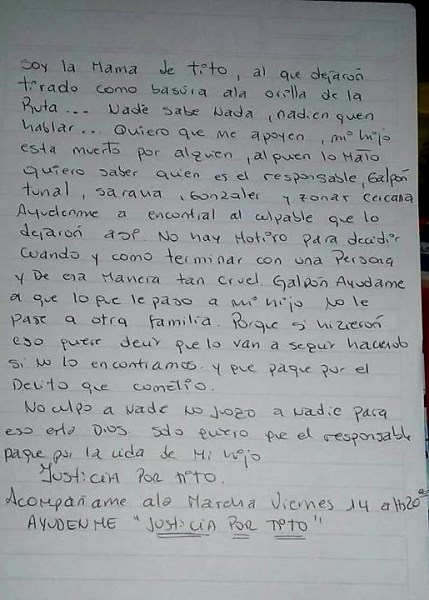 Soy la Mama de tito, al que dejarón
tirado como basura ala orilla de la
Ruta... Nade sabe Nada, nadien quen
hablar... Quiero que me apoyen, mi hijo
esta muerto por alguien, alguen lo Mato
Quiero saber quien es el responsable, Galpón
tunal, sarava, Gonzaler y zonar cercana
Ayudenme a encontral al culpable que lo
dejarón asi. No hay Motivo para decidir
cuando y como terminar con una Persona
y De esa Manera tan cruel. Galpón Ayudame
a que lo que le paso a mi hijo No le
pase a otra familia. Porque si hizieron
eso quere decir que lo van a seguir haciendo
si no lo encontramos y que pague por el
Delito que cometio.
No culpo a Nade No juzgo a Nadie para
eso esta Dios. solo quero que el responsable
pague por la vida de Mi hijo
Justicia Por tito.
Acompáñame ala Marcha Viernes 14 a Hs20
AYUDENME "Justicia Por Tito"